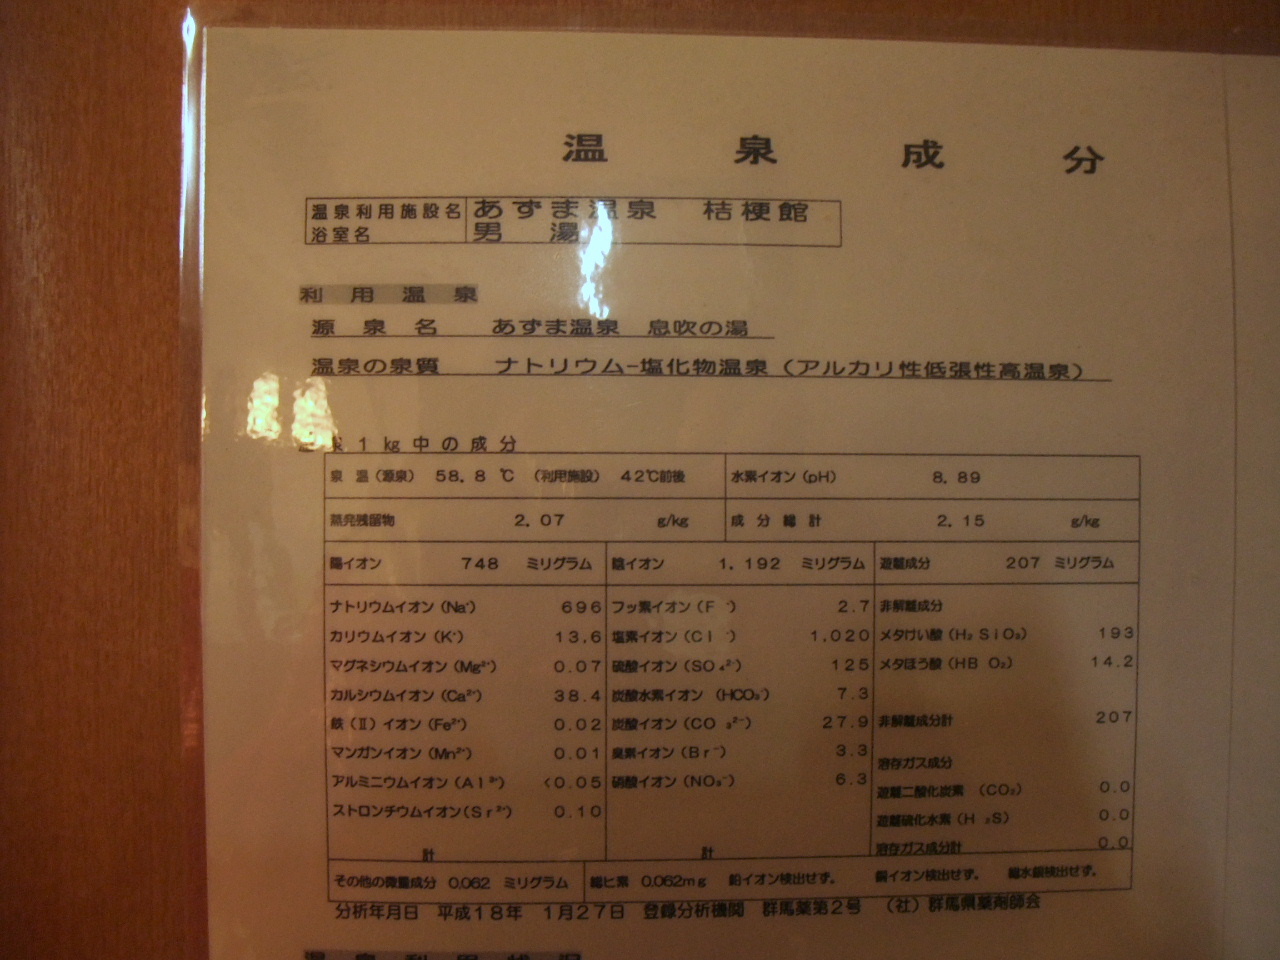 温泉成分
温泉利用施設名 あずま温泉 桔梗館
浴室名 男 湯
利用温泉
源泉名 あずま温泉 息吹の湯
温泉の泉質 ナトリウム-塩化物温泉（アルカリ性低張性高温泉）
1kg中の成分
泉温（源泉） 58.8℃ （利用施設） 42℃前後 水素イオン（pH） 8.89
蒸発残留物 2.07 g/kg 成分総計 2.15 g/kg
陽イオン 748 ミリグラム 陰イオン 1.192 ミリグラム 遊離成分 207 ミリグラム
ナトリウムイオン（Na⁺） 696 フッ素イオン（F⁻） 2.7 非解離成分
カリウムイオン（K⁺） 13.6 塩素イオン（Cl⁻） 1,020 メタけい酸（H₂SiO₃） 193
マグネシウムイオン（Mg²⁺） 0.07 硫酸イオン（SO₄²⁻） 125 メタほう酸（HBO₂） 14.2
カルシウムイオン（Ca²⁺） 38.4 炭酸水素イオン（HCO₃⁻） 7.3
鉄（Ⅱ）イオン（Fe²⁺） 0.02 炭酸イオン（CO₃²⁻） 27.9 非解離成分計 207
マンガンイオン（Mn²⁺） 0.01 臭素イオン（Br⁻） 3.3 溶存ガス成分
アルミニウムイオン（Al³⁺） <0.05 硝酸イオン（NO₃⁻） 6.3 遊離二酸化炭素（CO₂） 0.0
ストロンチウムイオン（Sr²⁺） 0.10 遊離硫化水素（H₂S） 0.0
計 計 溶存ガス成分計 0.0
その他の微量成分 0.062 ミリグラム 総ヒ素 0.062mg 鉛イオン検出せず。 銅イオン検出せず。 総水銀検出せず。
分析年月日 平成18年 1月27日 登録分析機関 群馬薬第2号 （社）群馬県薬剤師会
温泉利用状況